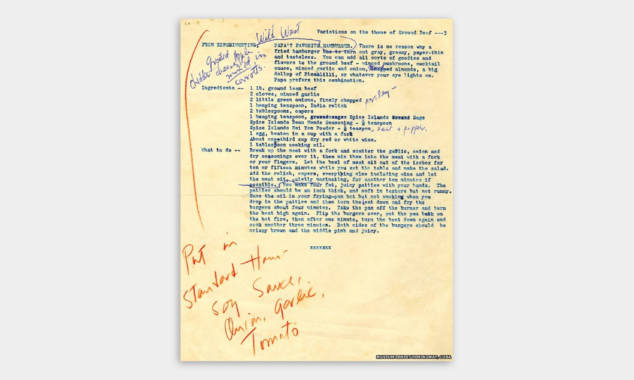 Variations on the theme of Ground Beef ---3
Wild West
FROM EXPERIMENTING,
PAPA'S FAVORITE HAMBURGER. There is no reason why a
fried hamburger has to turn out gray, greasy, paper-thin
and tasteless. You can add all sorts of goodies and
flavors to the ground beef - minced mushrooms, cocktail
sauce, minced garlic and onion, chopped almonds, a big
dollop of Piccalilli, or whatever your eye lights on.
Papa prefers this combination.
grated apple
cheddar cheese
carrots
Ingredients --
1 lb. ground lean beef
2 cloves, minced garlic
2 little green onions, finely chopped parsley
1 heaping teaspoon, India relish
2 tablespoons, capers
1 heaping teaspoon, Spice Islands Sage
Spice Islands Beau Monde Seasoning - ½ teaspoon
Spice Islands Mei Yen Powder - ½ teaspoon, salt & pepper.
1 egg, beaten in a cup with a fork
About one-third cup dry red or white wine.
1 tablespoon cooking oil.
What to do --
Break up the meat with a fork and scatter the garlic, onion and
dry seasonings over it, then mix them into the meat with a fork
or your fingers. Let the bowl of meat sit out of the icebox for
ten or fifteen minutes while you set the table and make the salad.
Add the relish, capers, everything else including wine and let
the meat sit, quietly marinating, for another ten minutes if
possible. Now make four fat, juicy patties with your hands. The
patties should be an inch thick, and soft in texture but not runny.
Have the oil in your frying-pan hot but not smoking when you
drop in the patties and then turn the heat down and fry the
burgers about four minutes. Take the pan off the burner and turn
the heat high again. Flip the burgers over, put the pan back on
the hot fire, then after one minute, turn the heat down again and
cook another three minutes. Both sides of the burgers should be
crispy brown and the middle pink and juicy.
Put in
Standard Ham-
Soy Sauce,
Onion, garlic,
Tomato